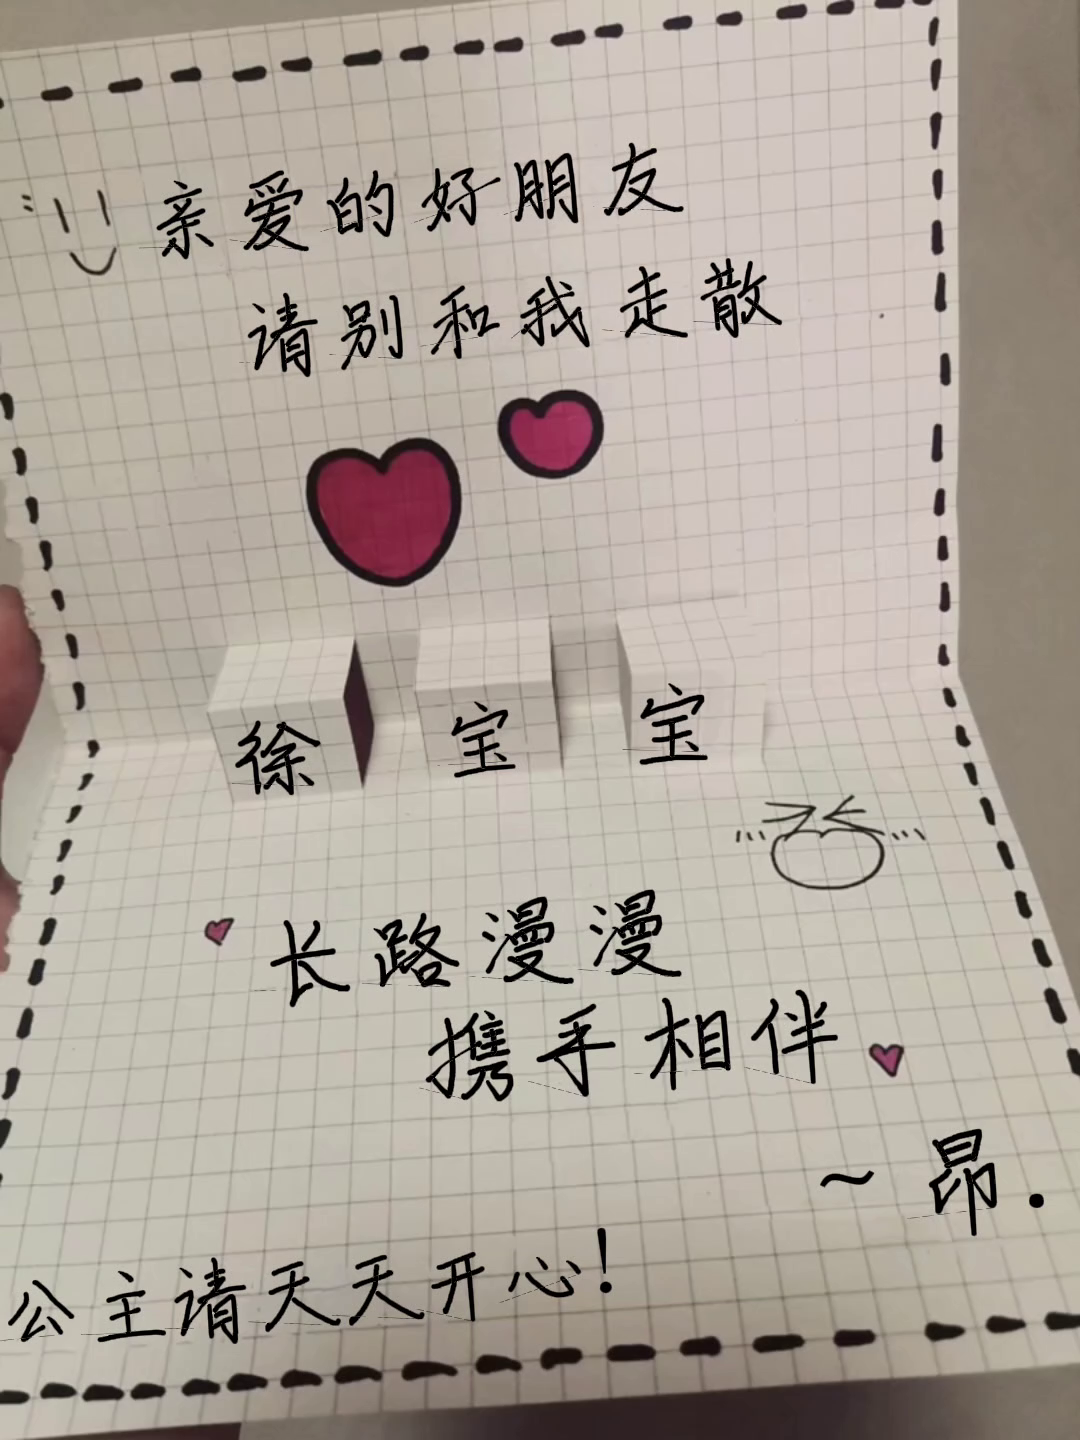 亲爱的好朋友
请别和我走散
徐宝宝
长路漫漫
携手相伴.
~昂.
公主请天天开心!